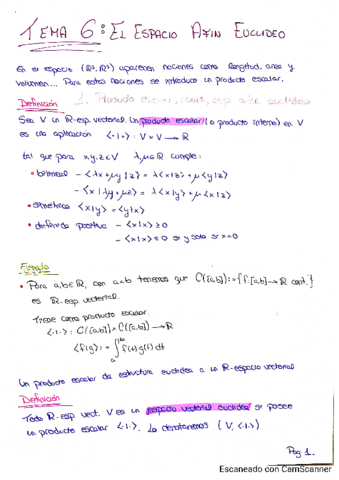 TEMA 6: EL ESPACIO AFIN EUCLIDEO
En el espacio (ℝ², ℝ³) aparecen nociones como longitud, area y
volumen... Para estas nociones se introduce un producto escalar.
Definición 1. Producto escalar, norma, esp. afin euclideo
Sea V un ℝ-esp. vectorial. Un producto escalar (o producto interno) en V
es una aplicación <·|·>: V × V → ℝ
tal que para x,y,z∈V λ,μ∈ℝ cumple:
• bilineal - <λx+μy|z> = λ<x|z> + μ<y|z>
- <x|λy+μz> = λ<x|y> + μ<x|z>
• simetrica <x|y> = <y|x>
• definida positiva - <x|x> ≥ 0
- <x|x> = 0 si y solo si x=0
Ejemplo
• Para a,b∈ℝ, con a<b tenemos que C([a,b]) := {f:[a,b]→ℝ cont.}
es ℝ-esp vectorial.
Tiene como producto escalar
<·|·>: C([a,b]) × C([a,b]) → ℝ
<f|g> := ∫ₐᵇ f(t)·g(t) dt
Un producto escalar da estructura euclidea a un ℝ-espacio vectorial
Definición
Todo ℝ-esp. vect. V es un espacio vectorial euclideo si posee
un producto escalar <·|·>. Lo denotaremos (V, <·|·>)
Pag 1.
Escaneado con CamScanner